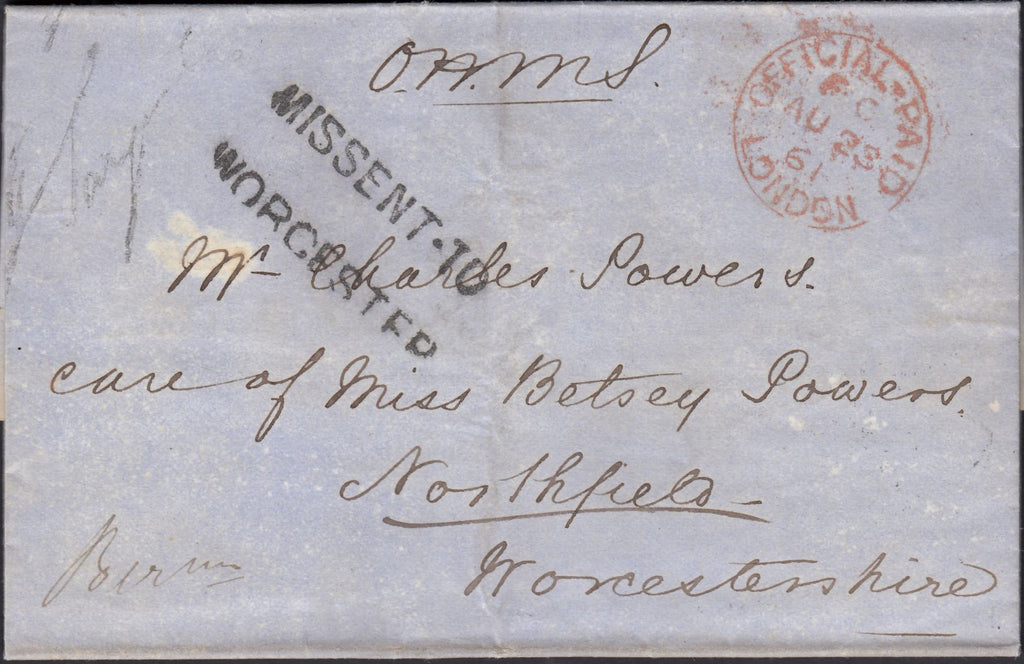 O.H.M.S.
OFFICIAL · PAID
C
AU 23
61
LONDON
MISSENT-TO
WORCESTER
Mr Charles Powers.
care of Miss Betsey Powers.
Northfield
Worcestershire
Birm